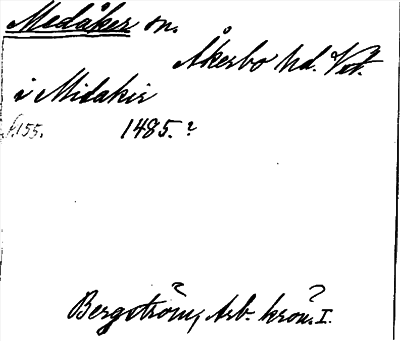 Medåker sn.
Åkerbo hd. Vstm.
i Midakir
f. 155. 1485.?
Bergström, Arb. krön. I.